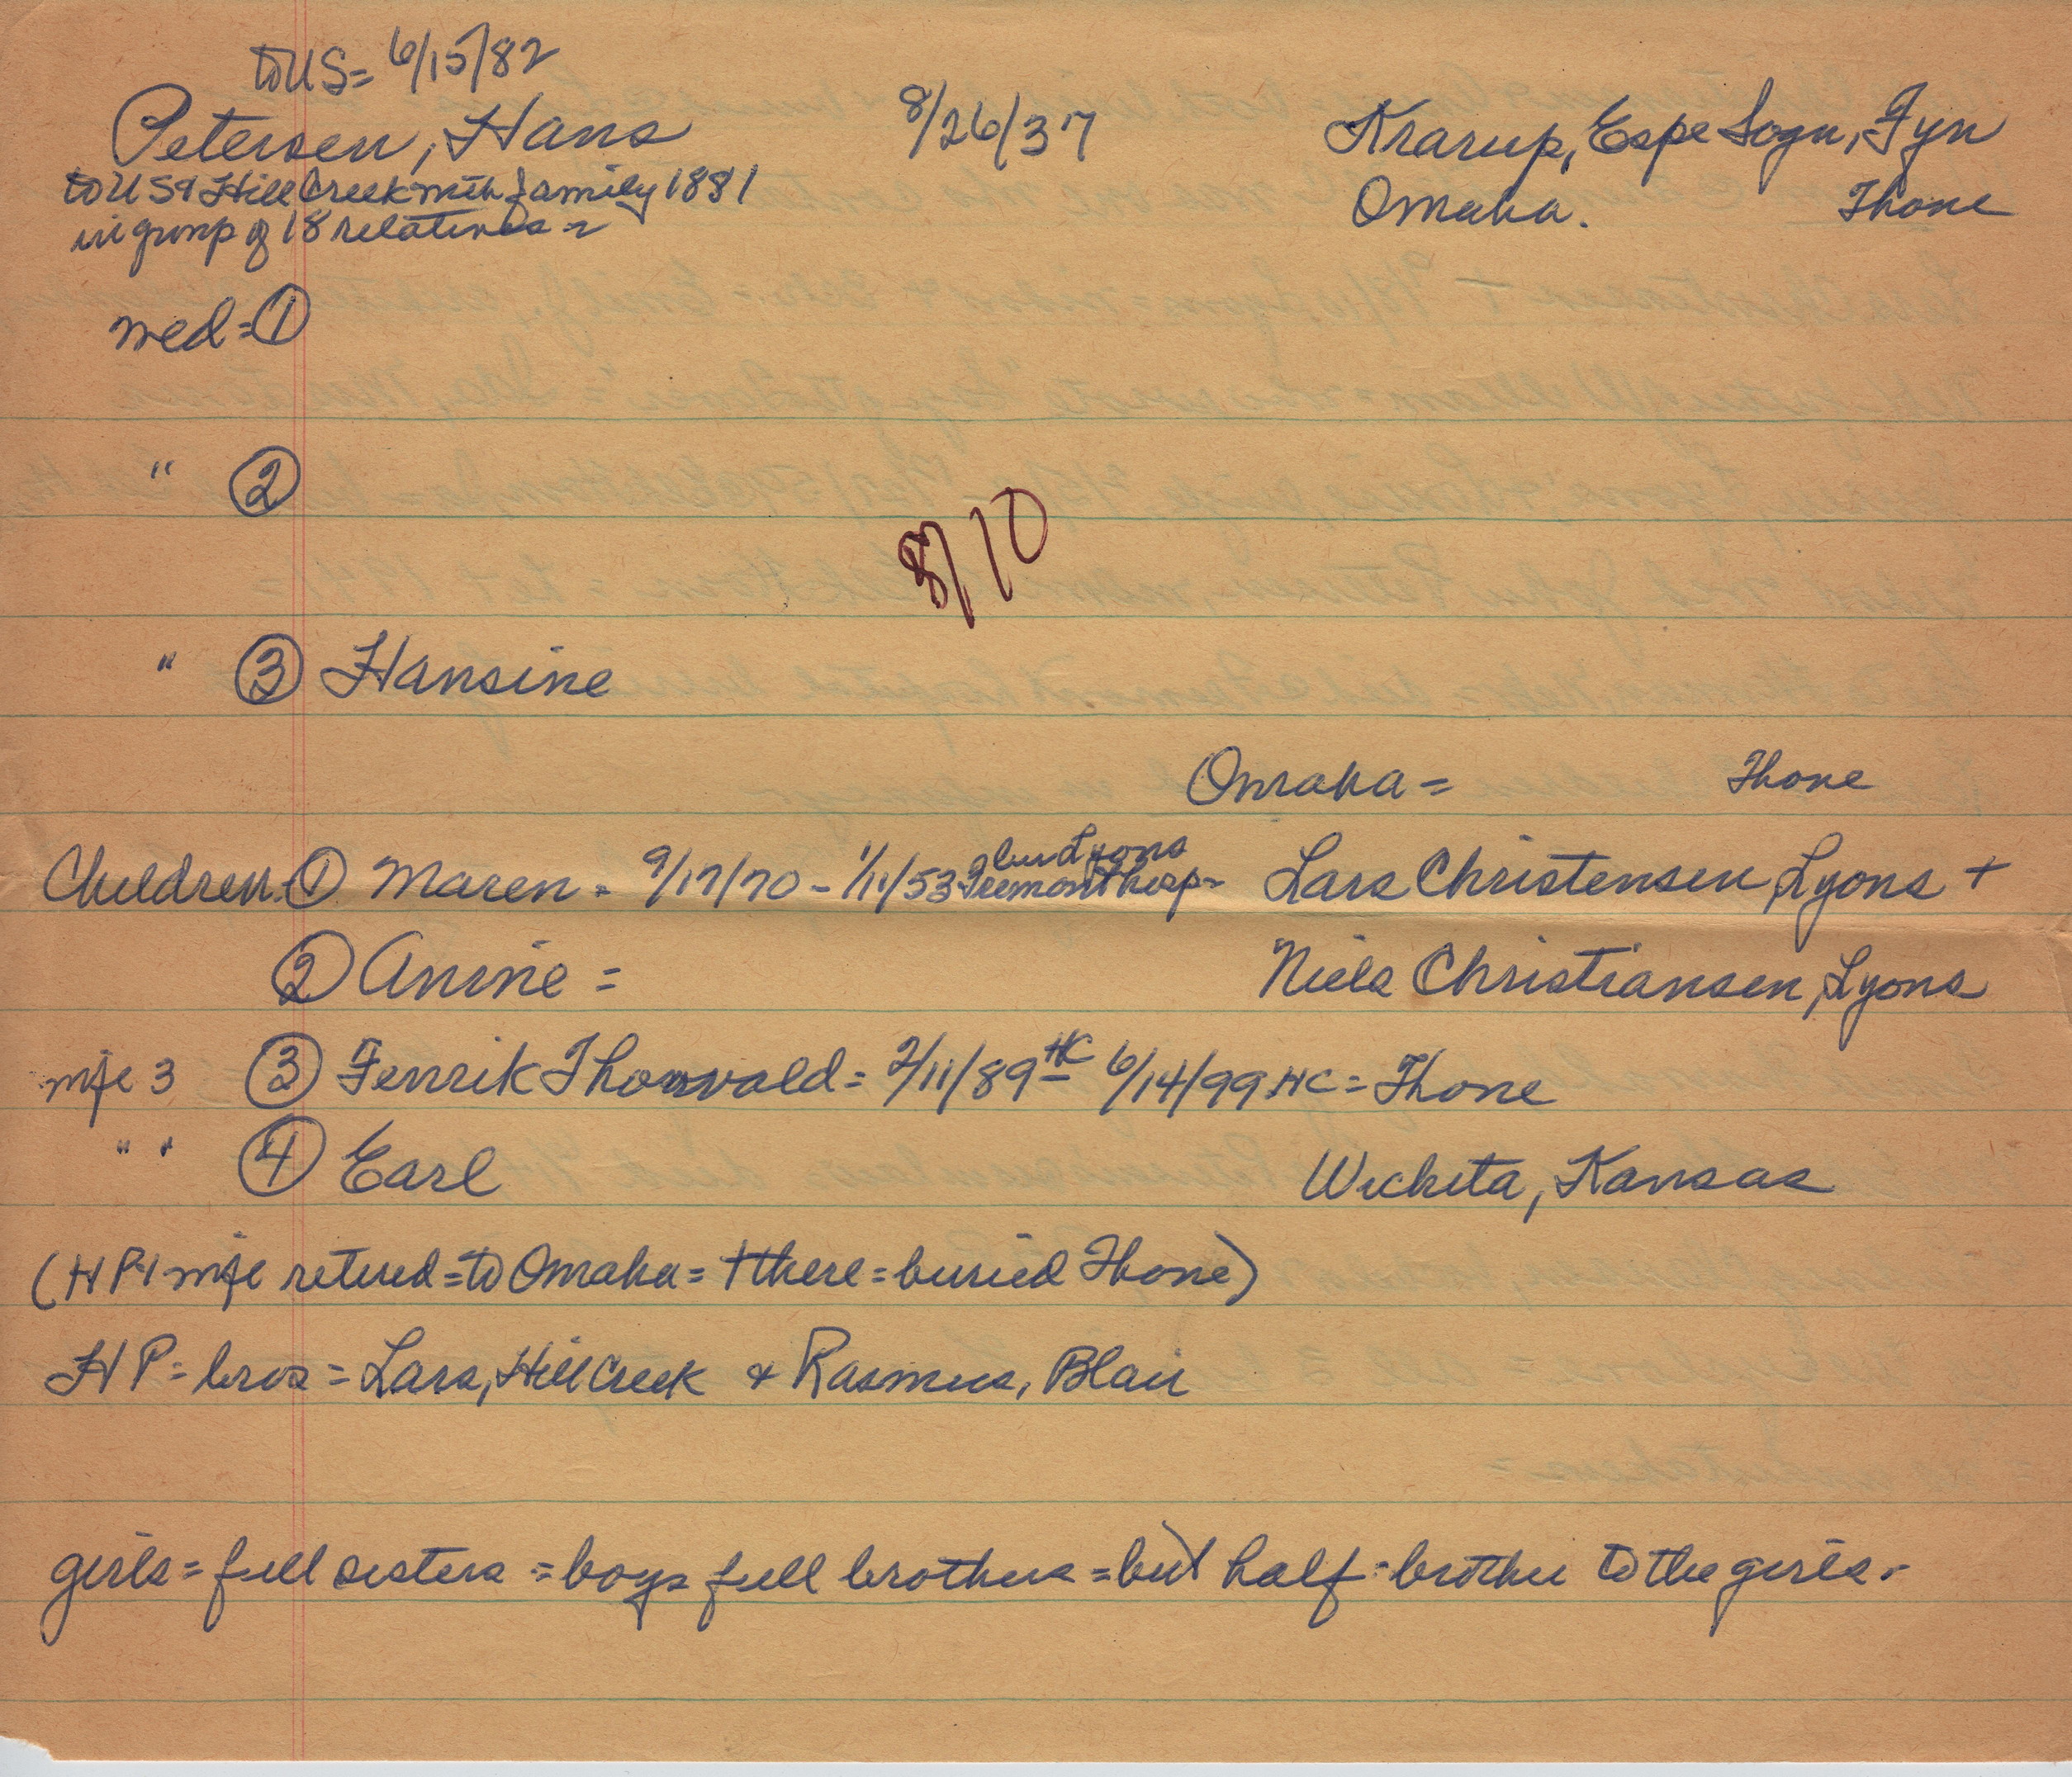 to US = 6/15/82
Petersen, Hans 8/26/37 Krarup, Espe Sogn, Fyn
to US & Hill Creek with family 1881 Omaha. Thone
in group of 18 relatives =
wed = ①
" ②
8/10
" ③ Hansine
Omaha = Thone
Children ① Maren = 9/17/70 - 1/11/53 Fremont hosp = bur Lyons Lars Christensen, Lyons +
② Anine = Niels Christiansen, Lyons
wife 3 ③ Fenrik Thorwald = 2/11/89 HC - 6/14/99 HC = Thone
" " ④ Earl Wichita, Kansas
(HP & wife retired = to Omaha = + there = buried Thone)
HP = bros = Lars, Hill Creek & Rasmus, Blair
girls = full sisters = boys full brothers = but half-brother to the girls.